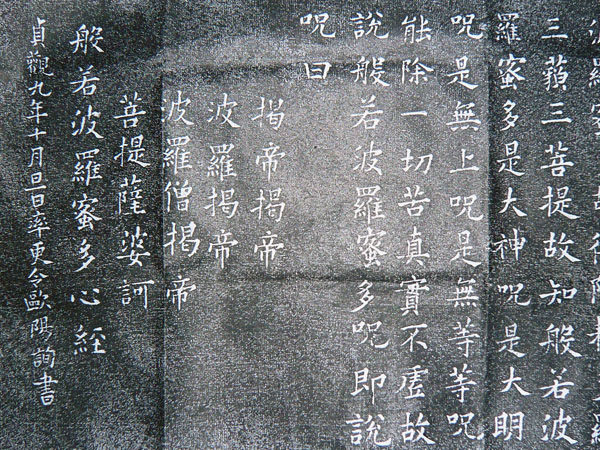 波羅蜜多故得阿耨多羅
三藐三菩提故知般若波
羅蜜多是大神呪是大明
呪是無上呪是無等等呪
能除一切苦真實不虛故
說般若波羅蜜多呪即說
呪曰
揭帝揭帝
波羅揭帝
波羅僧揭帝
菩提薩婆訶
般若波羅蜜多心經
貞觀九年十月旦日率更令歐陽詢書